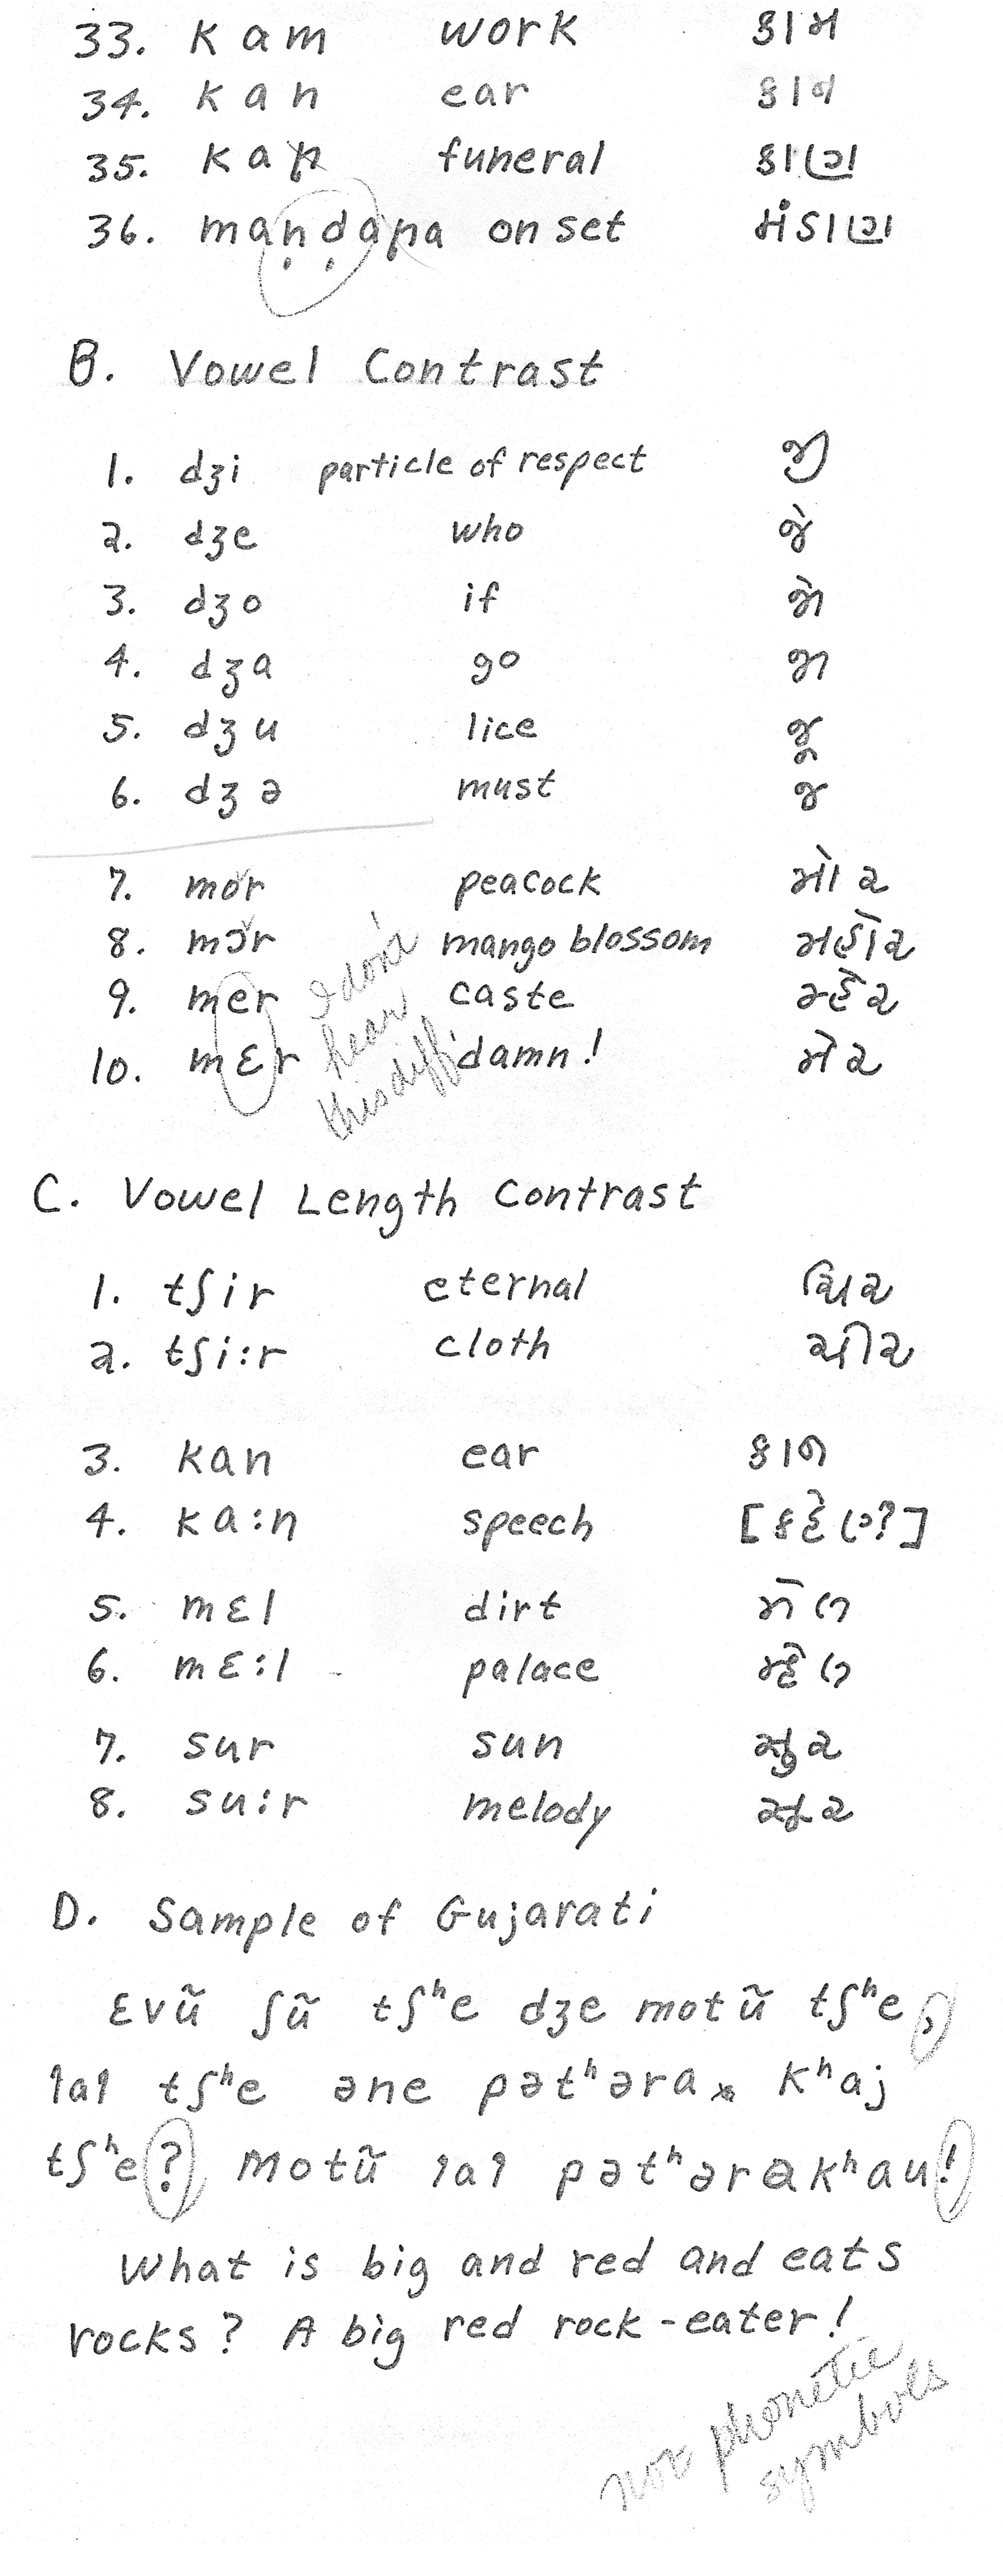 33. kam work કામ
34. kan ear કાન
35. kaɳ funeral કાણ
36. maṇḍaɳa onset મંડાણ
B. Vowel Contrast
1. dʒi particle of respect જી
2. dʒe who જે
3. dʒo if જો
4. dʒa go જા
5. dʒu lice જૂ
6. dʒə must જ
7. mor peacock મોર
8. mɔr mango blossom મહોર
9. mer caste મહેર
10. mɛr damn! મેર
I don't
hear
this diff.
C. Vowel Length Contrast
1. tʃir eternal ચિર
2. tʃi:r cloth ચીર
3. kan ear કાન
4. ka:n speech [કહેણ?]
5. mɛl dirt મેલ
6. mɛ:l palace મહેલ
7. sur sun સુર
8. su:r melody સૂર
D. Sample of Gujarati
ɛvũ ʃũ tʃʰe dʒe motũ tʃʰe,
lal tʃʰe əne pətʰəra kʰaj
tʃʰe? motũ lal pətʰərakʰau!
What is big and red and eats
rocks? A big red rock-eater!
not phonetic
symbols